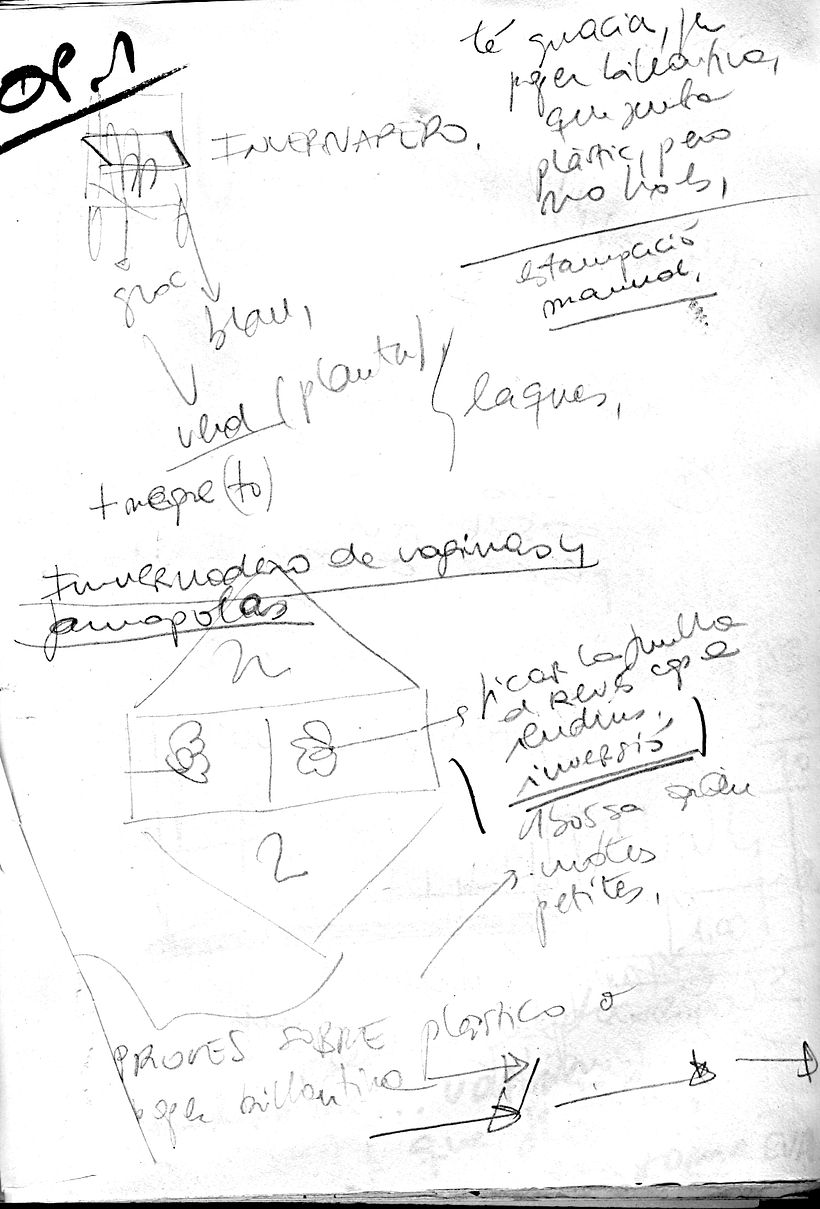 OP.1
INVERNADERO.
té gracia, fer
paper brillantina,
que sembla
plàstic, pero
no ho es,
estampació
manual,
groc
blau,
verd (planta)
laques,
+ negre (to)
Invernadero de vaginas y
amapolas
2
ficar la
a
inversió
1 bossa
motes
petites,
2
PROVES SOBRE plástico o
paper brillantina